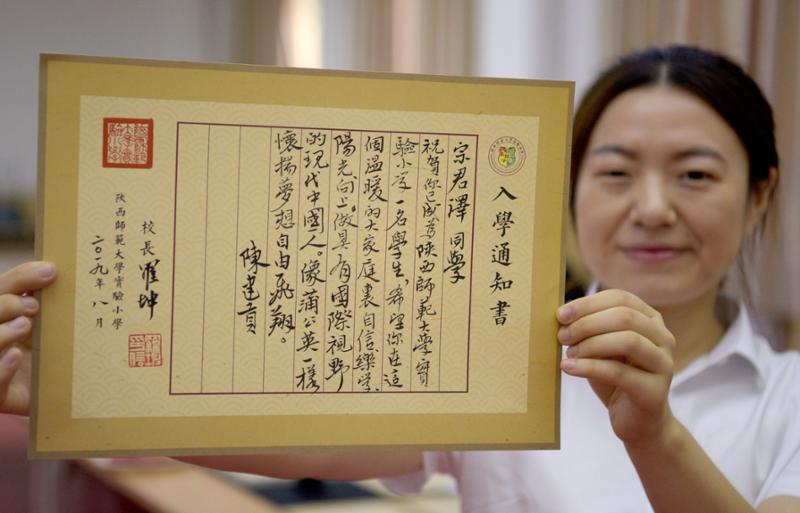 入學通知書
宗君澤 同學
祝賀你已成爲陝西師範大學實
驗小學一名學生,希望你在這
個溫暖的大家庭裏自信樂學、
陽光向上。做具有國際視野
的現代中國人。像蒲公英一樣
懷揣夢想自由飛翔。
陳建貢
校長 羅坤
陝西師範大學實驗小學
二〇一九年八月